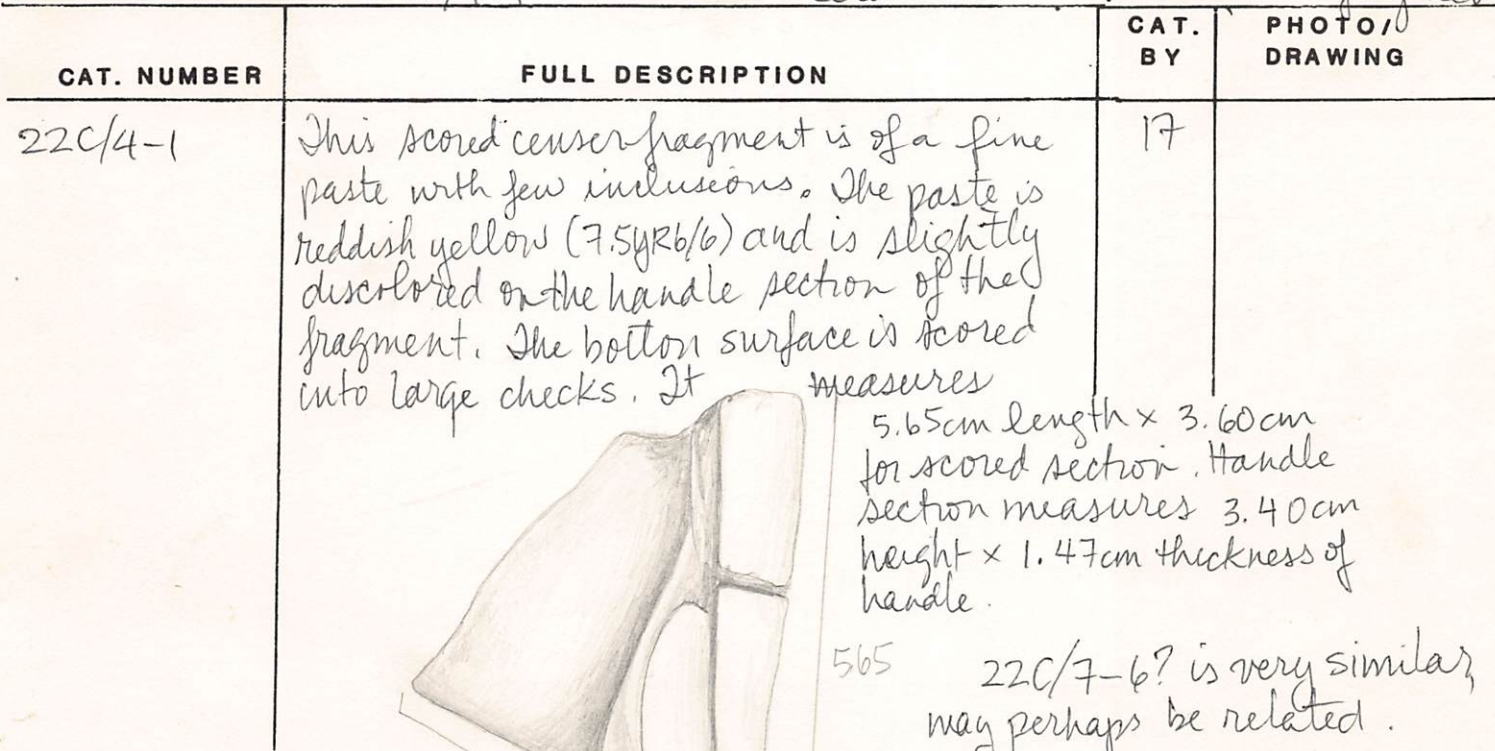 CAT. NUMBER
FULL DESCRIPTION
CAT. BY
PHOTO/ DRAWING
22C/4-1
17
This scored censer fragment is of a fine
paste with few inclusions. The paste is
reddish yellow (7.5YR6/6) and is slightly
discolored on the handle section of the
fragment. The bottom surface is scored
into large checks. It measures
5.65cm length x 3.60cm
for scored section. Handle
section measures 3.40cm
height x 1.47cm thickness of
handle.
565
22C/7-6? is very similar,
may perhaps be related.